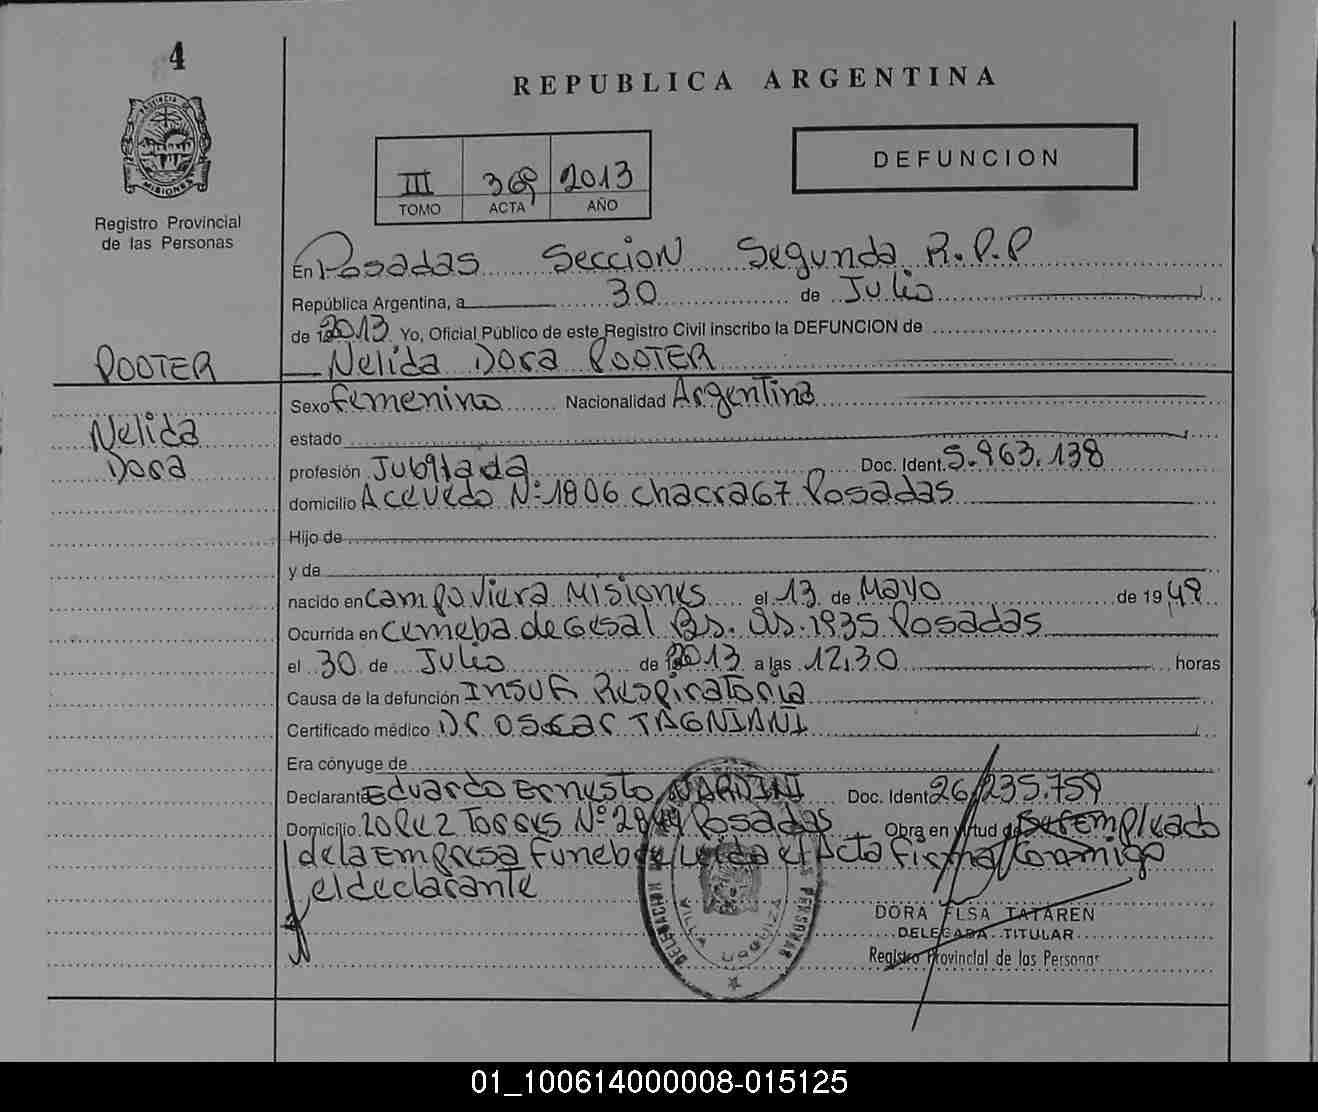 4
PROVINCIA DE
MISIONES
Registro Provincial
de las Personas
REPUBLICA ARGENTINA
III 369 2013
TOMO ACTA AÑO
DEFUNCION
En Posadas Seccion Segunda R.P.P
República Argentina, a 30 de Julio
de 2013 Yo, Oficial Público de este Registro Civil inscribo la DEFUNCION de
POOTER
Nelida Dora POOTER
Sexo femenino Nacionalidad Argentina
Nelida
Dora
estado
profesión Jubilada Doc. Ident. 5.963.138
domicilio Acevedo Nº 1806 chacra 67 Posadas
Hijo de
y de
nacido en campo viera Misiones el 13 de Mayo de 1948
Ocurrida en cemeba de Gesal Bs. As. 1935 Posadas
el 30 de Julio de 2013 a las 12,30 horas
Causa de la defunción Insuf. Respiratoria
Certificado médico Dr Oscar TAGNIANI
Era cónyuge de
Declarante Eduardo Ernesto NARDINI Doc. Ident 26.235.759
Domicilio Lopez Torres Nº Posadas Obra en virtud de ser Empleado
de la Empresa Funebre Leida el Acta Firma Conmigo
el declarante
VILLA URQUIZA
DORA ELSA TATAREN
DELEGADA TITULAR
Registro Provincial de las Personas
01_100614000008-015125